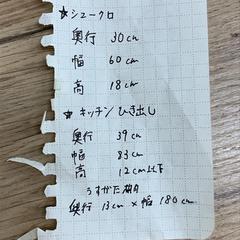 ★シュークロ
奥行 30cm
幅 60cm
高 18cm
★キッチンひき出し
奥行 39cm
幅 83cm
高 12cm以下
うすかた棚
奥行 13cm × 幅 180cm